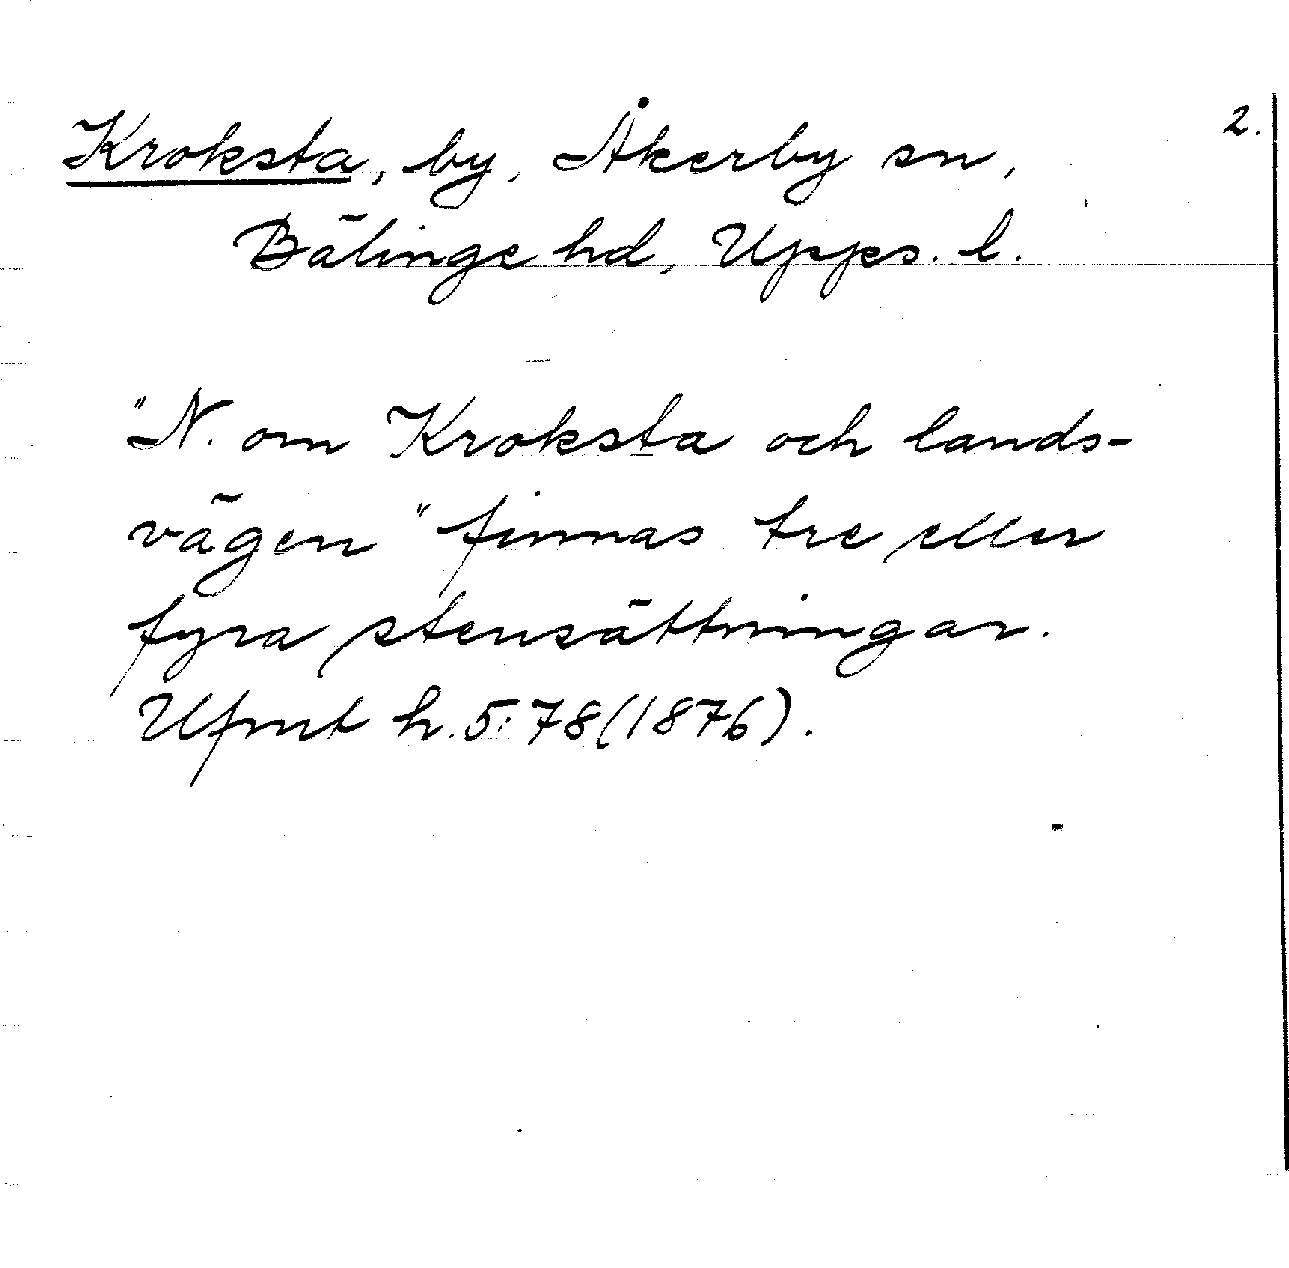 2.
Kroksta, by, Åkerby sn,
Bälinge hd, Upps. l.
"N. om Kroksta och lands-
vägen" finnas tre eller
fyra stensättningar.
Ufmt h. 5:78 (1876).